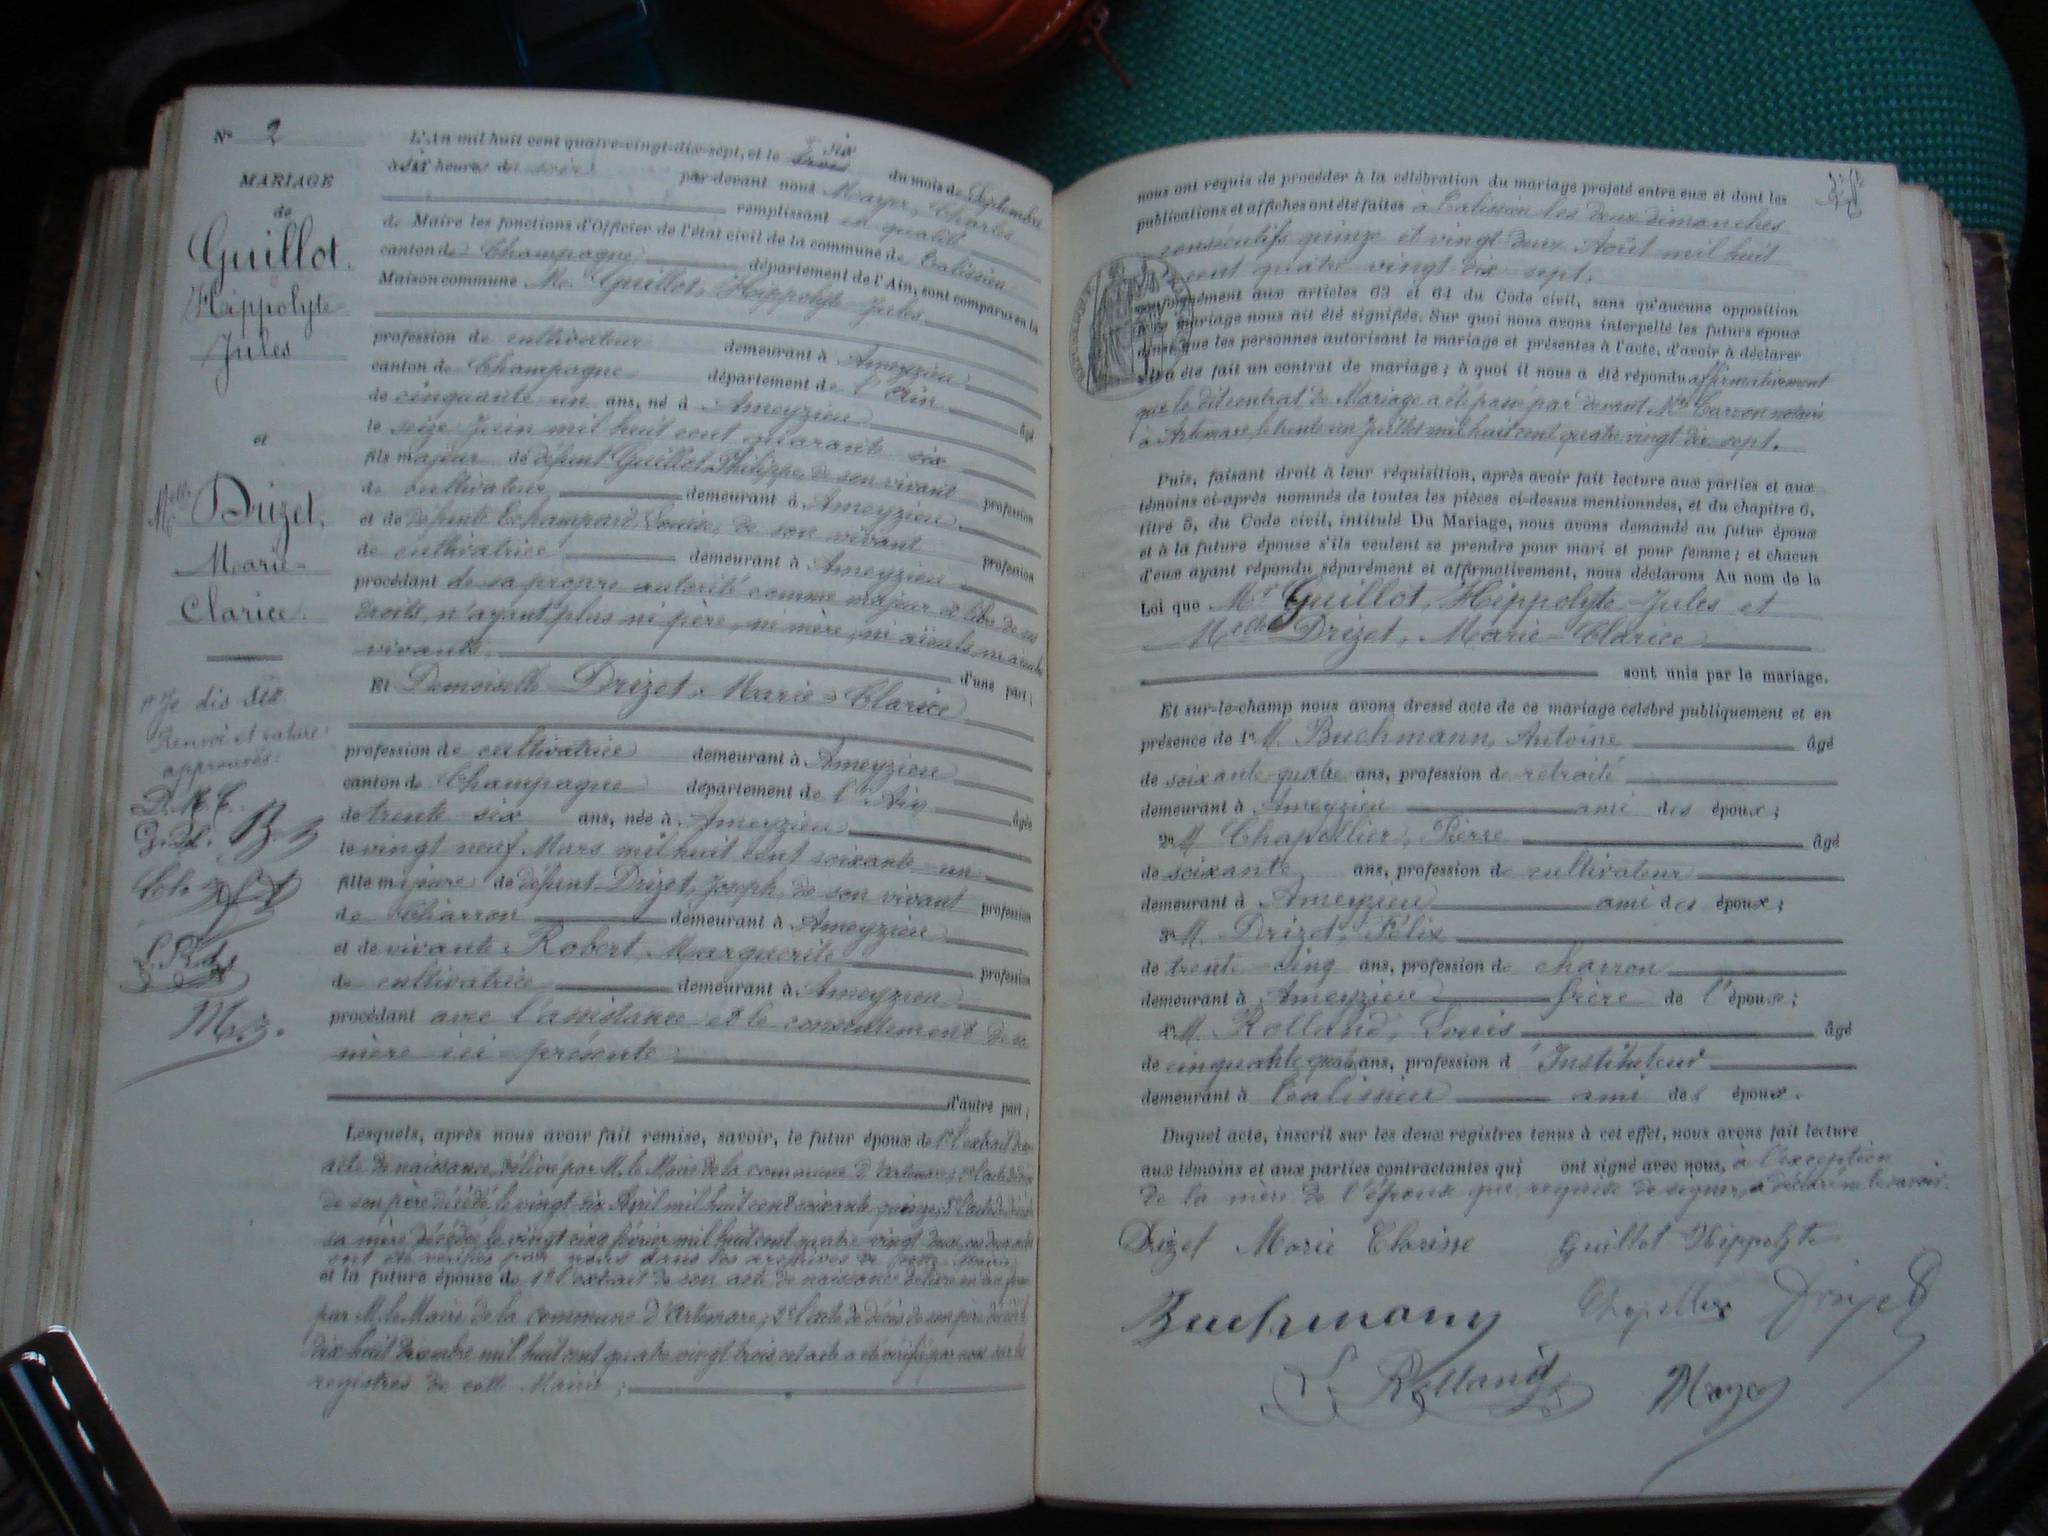 N° 2
MARIAGE
de
Guillot,
Hippolyte-
Jules
et
Melle Drizet,
Marie-
Clarice.
Je dis six
Renvoi et rature
approuvés.
D. M. C.
G. H. B
L. Rd
M.
L'An mil huit cent quatre-vingt-dix-sept, et le trois six du mois de Septembre
à six heures du soir par-devant nous Mayer, Charles
remplissant en qualité
de Maire les fonctions d'Officier de l'état civil de la commune de Talissieu
canton de Champagne département de l'Ain, sont comparus en la
Maison commune M. Guillot, Hippolyte-Jules
profession de cultivateur demeurant à Ameyzieu
canton de Champagne département de l'Ain âgé
de cinquante un ans, né à Ameyzieu
le seize Juin mil huit cent quarante six
fils majeur de défunt Guillot, Philippe, de son vivant profession
de cultivateur demeurant à Ameyzieu
et de défunte Echampard Louise, de son vivant profession
de cultivatrice demeurant à Ameyzieu
procédant de sa propre autorité comme majeur et libre de ses
droits, n'ayant plus ni père, ni mère, ni aïeuls, ni aïeules
vivants, d'une part;
Et Demoiselle Drizet, Marie-Clarice
profession de cultivatrice demeurant à Ameyzieu
canton de Champagne département de l'Ain âgée
de trente-six ans, née à Ameyzieu
le vingt neuf Mars mil huit cent soixante-un
fille majeure de défunt Drizet, Joseph, de son vivant profession
de Charron demeurant à Ameyzieu
et de vivante Robert, Marguerite profession
de cultivatrice demeurant à Ameyzieu
procédant avec l'assistance et le consentement de sa
mère ici présente
d'autre part;
Lesquels, après nous avoir fait remise, savoir, le futur époux de 1° l'extrait de son
acte de naissance, délivré par M. le Maire de la commune d'Artemare; 2° l'acte de décès
de son père décédé le vingt-six Avril mil huit cent soixante quinze; 3° l'acte de décès de
sa mère décédée le vingt cinq février mil huit cent quatre vingt deux, ces deux actes
ont été vérifiés par nous dans les archives de cette Mairie
et la future épouse de 1° l'extrait de son acte de naissance délivré
par M. le Maire de la commune d'Artemare; 2° l'acte de décès de son père décédé le
dix-huit Décembre mil huit cent quatre vingt trois, cet acte a été vérifié par nous sur les
registres de cette Mairie;
nous ont requis de procéder à la célébration du mariage projeté entre eux et dont les
publications et affiches ont été faites à Talissieu les deux dimanches
consécutifs quinze et vingt deux Août mil huit
cent quatre vingt dix sept.
conformément aux articles 63 et 64 du Code civil, sans qu'aucune opposition
à ce mariage nous ait été signifiée. Sur quoi nous avons interpellé les futurs époux
ainsi que les personnes autorisant le mariage et présentes à l'acte, d'avoir à déclarer
s'il a été fait un contrat de mariage; à quoi il nous a été répondu affirmativement
que le dit contrat de Mariage a été passé par devant Me Carron notaire
à Artemare, le trente un Juillet mil huit cent quatre vingt dix sept.
Puis, faisant droit à leur réquisition, après avoir fait lecture aux parties et aux
témoins ci-après nommés de toutes les pièces ci-dessus mentionnées, et du chapitre 6,
titre 5, du Code civil, intitulé Du Mariage, nous avons demandé au futur époux
et à la future épouse s'ils veulent se prendre pour mari et pour femme; et chacun
d'eux ayant répondu séparément et affirmativement, nous déclarons Au nom de la
Loi que Mr Guillot, Hippolyte-Jules et
Melle Drizet, Marie-Clarice
sont unis par le mariage.
Et sur-le-champ nous avons dressé acte de ce mariage célébré publiquement et en
présence de 1° M. Buchmann, Antoine âgé
de soixante-quatre ans, profession de retraité
demeurant à Ameyzieu ami des époux;
2° M. Chapellier, Pierre âgé
de soixante ans, profession de cultivateur
demeurant à Ameyzieu ami des époux;
3° M. Drizet, Félix
de trente-cinq ans, profession de charron
demeurant à Ameyzieu frère de l'époux;
4° M. Rolland, Louis âgé
de cinquante quatre ans, profession d'Instituteur
demeurant à Talissieu ami des époux.
Duquel acte, inscrit sur les deux registres tenus à cet effet, nous avons fait lecture
aux témoins et aux parties contractantes qui ont signé avec nous, à l'exception
de la mère de l'épouse qui, requise de signer, a déclaré ne le savoir.
Drizet Marie Clarisse Guillot Hippolyte
Buchmann Chapellier Drizet
L. Rolland Mayer